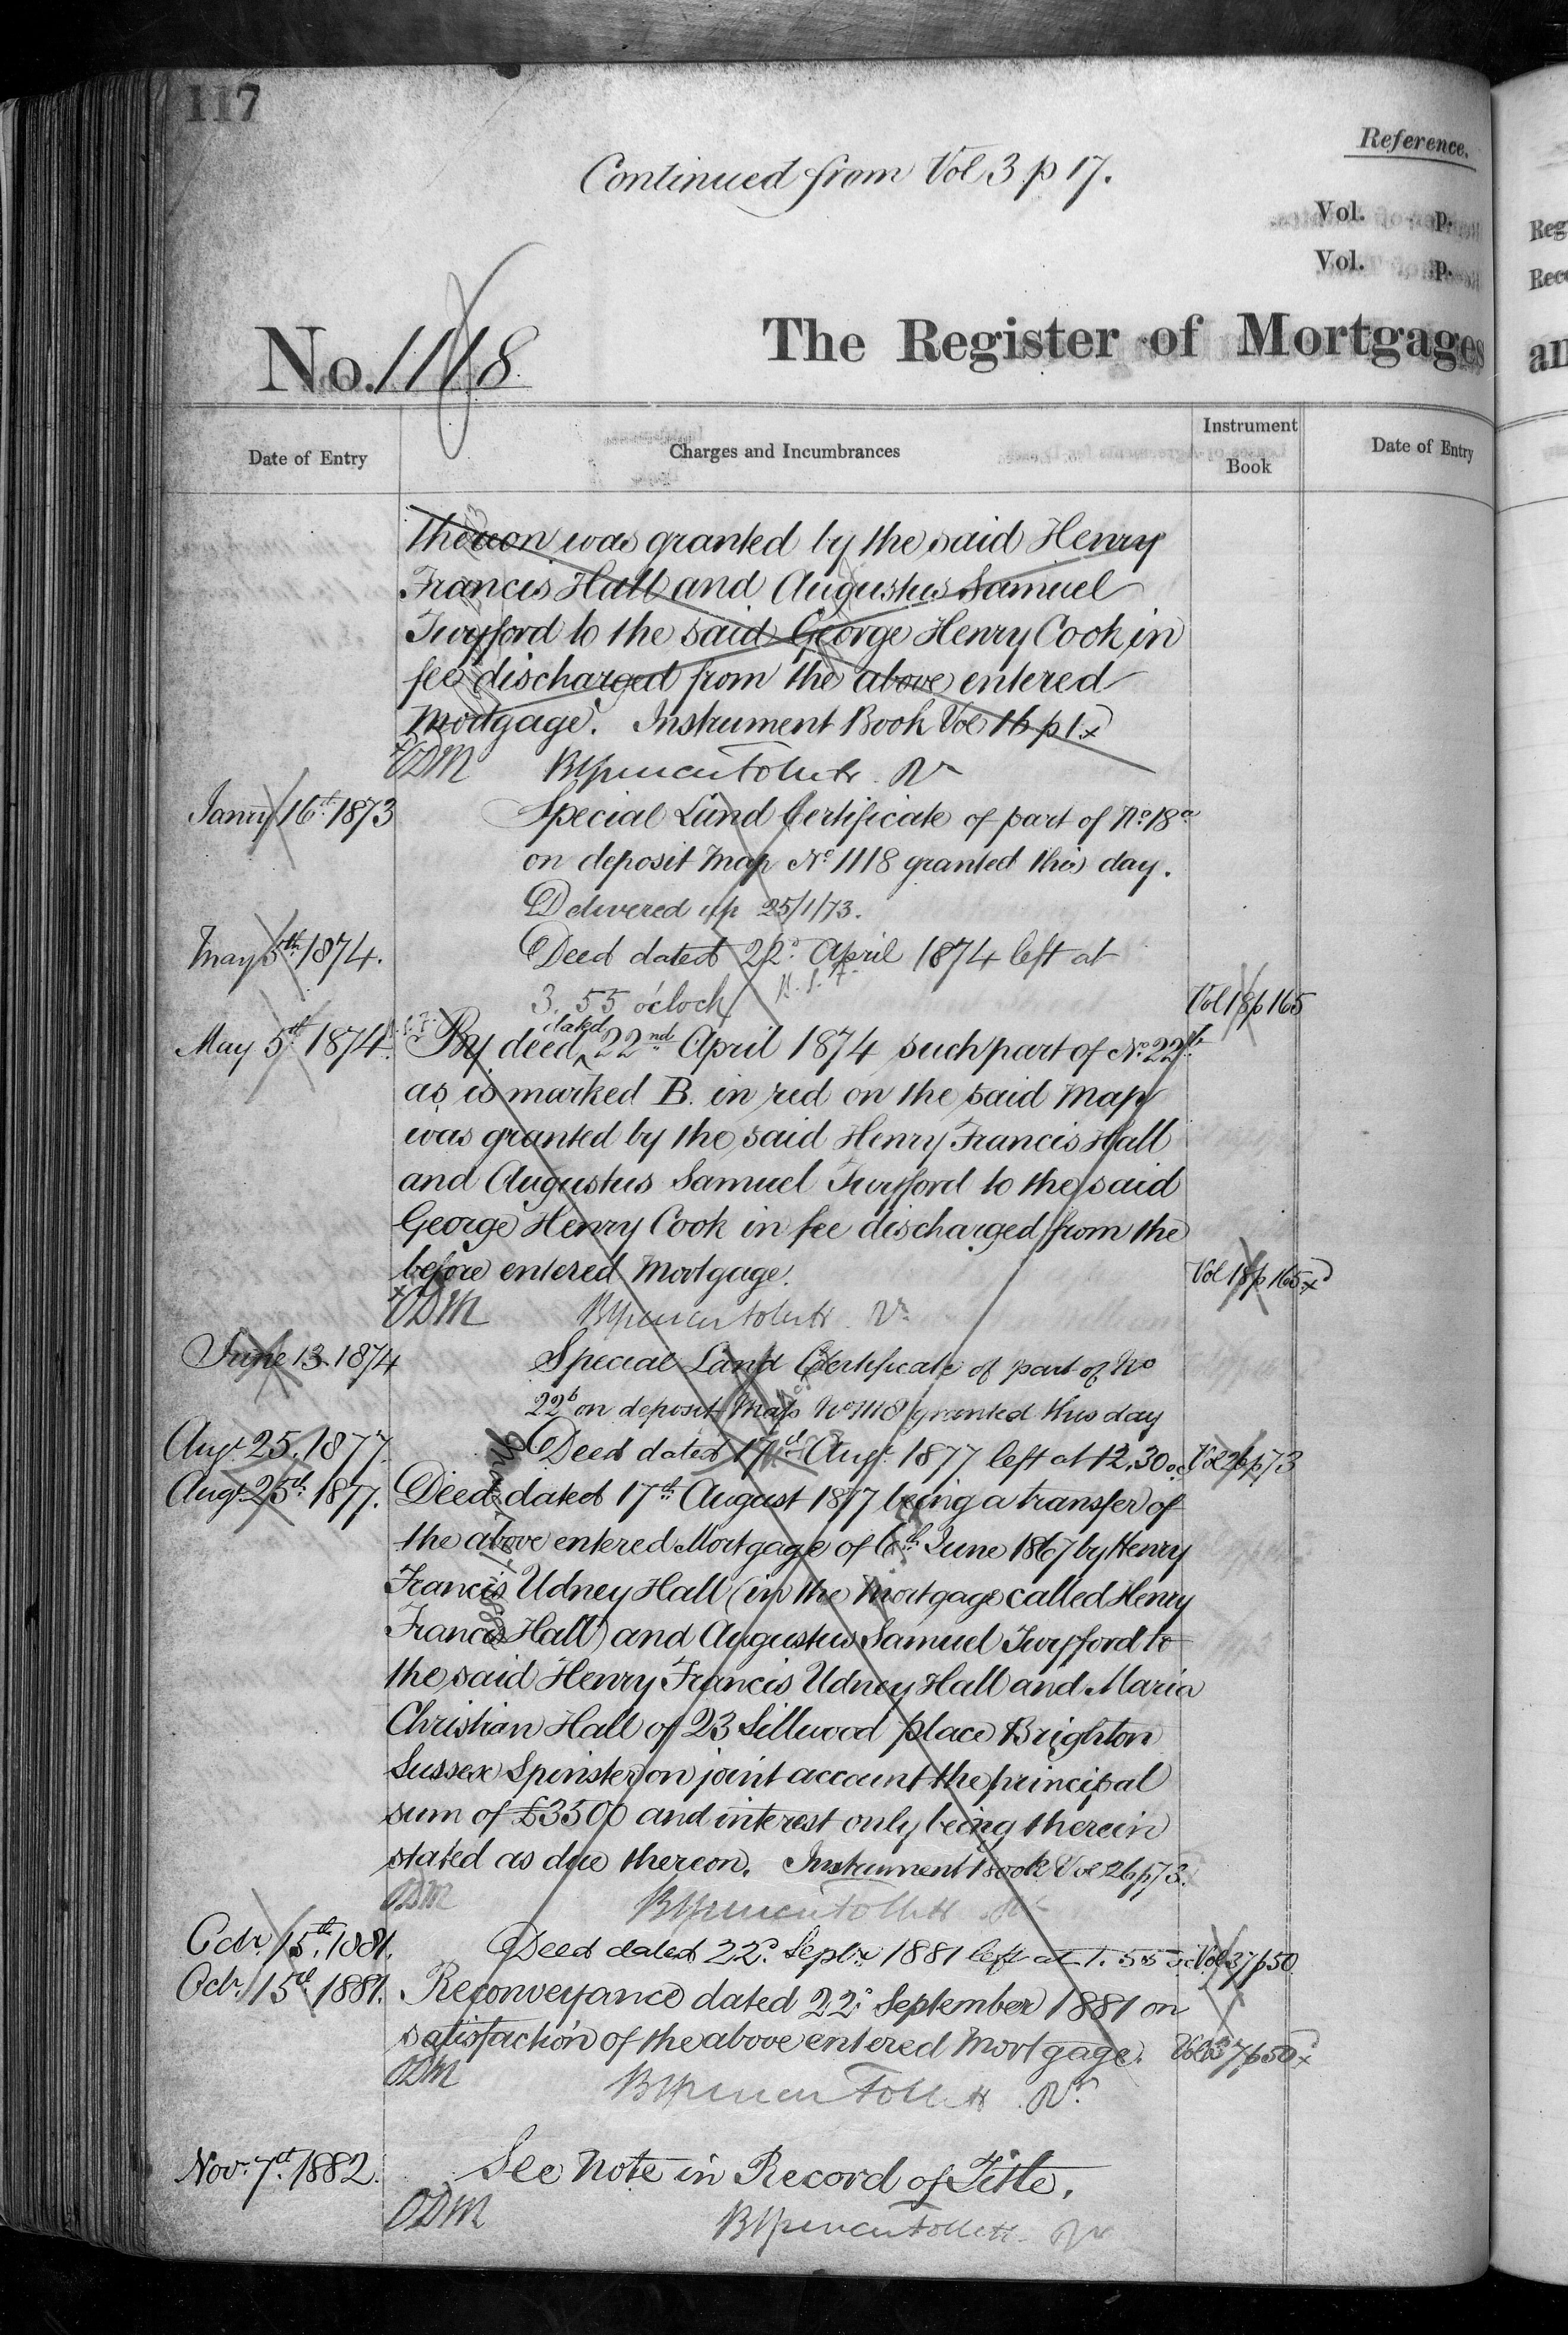 117
Continued from Vol 3 p 17.
Reference.
Vol. p.
Vol. p.
No. 1118
The Register of Mortgages
Date of Entry
Charges and Incumbrances
Instrument Book
Date of Entry
thereon was granted by the said Henry
Francis Hall and Augustus Samuel
Twyfford to the said George Henry Cook in
fee discharged from the above entered
Mortgage. Instrument Book Vol 16 p 1.
ODM
Jany 16th 1873 Special Land Certificate of part of No. 18a
on deposit Map No 1118 granted this day.
Delivered up 25/1/73.
May 5th 1874. Deed dated 22d April 1874 left at
3.55 o'clock Vol 18 p 165
May 5th 1874. By deed dated 22nd April 1874 such part of No. 22b
as is marked B. in red on the said Map
was granted by the said Henry Francis Hall
and Augustus Samuel Twyfford to the said
George Henry Cook in fee discharged from the
before entered Mortgage. Vol 18 p 165
ODM
June 13. 1874 Special Land Certificate of part of No
22b on deposit Map No 1118 granted this day
Augt 25. 1877. Deed dated 17th Augt 1877 left at 12.30 Vol 26 p 73
Augt 25th 1877. Deed dated 17th August 1877 being a transfer of
the above entered Mortgage of 6th June 1867 by Henry
Francis Udney Hall (in the Mortgage called Henry
Francis Hall) and Augustus Samuel Twyfford to
the said Henry Francis Udney Hall and Maria
Christian Hall of 23 Sillwood place Brighton
Sussex Spinster on joint account the principal
sum of £3500 and interest only being therein
stated as due thereon. Instrument Book Vol 26 p 73.
ODM
Octr. 15th. 1881. Deed dated 22d. Septr 1881 left at 1.55 Vol 37 p 50
Octr. 15th 1881. Reconveyance dated 22d September 1881 on
satisfaction of the above entered Mortgage. Vol 37 p 50
ODM
Novr 7th 1882. See Note in Record of Title.
ODM